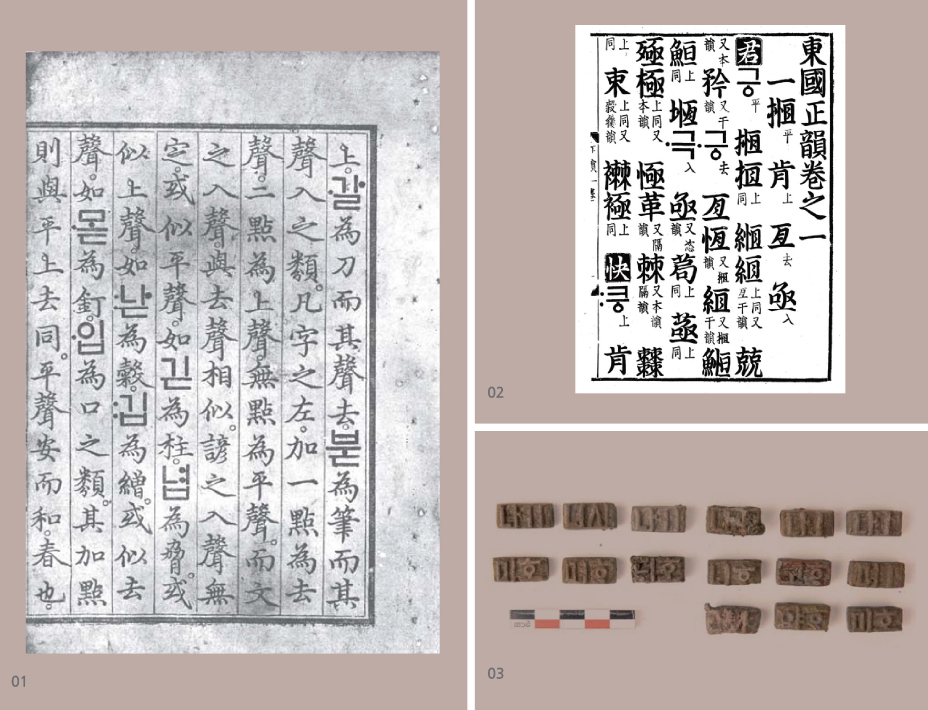 上。·갈為刀而其聲去。·붇為筆而其
聲入之類。凡字之左。加一點為去
聲。二點為上聲。無點為平聲。而文
之入聲與去聲相似。諺之入聲無
定。或似平聲。如긷為柱。녑為脅。或
似上聲。如:낟為縠。:깁為繒。或似去
聲。如·몯為釘。·입為口之類。其加點
則與平上去同。平聲安而和。春也。
01
東國正韻卷之一
一 揯平 肯上 亙去 亟入
君 긍平 揯 搄上同 緪 縆上同又亙干韻 兢
又本韻 矜又干韻 ·긍去 亙 恆 緪
上同 堩 ·극入 亟 上同
殛 極上同又本韻 革又隔韻 棘又本韻隔韻
上同 襋 上同 快 :킁上 肯
02
03